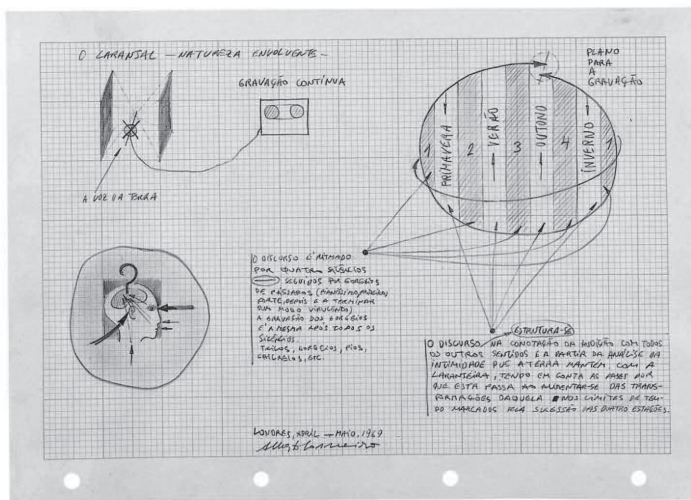 O LARANJAL — NATUREZA ENVOLVENTE —
GRAVAÇÃO CONTÍNUA
A VOZ DA TERRA
PLANO
PARA
A
GRAVAÇÃO
1
PRIMAVERA
2
VERÃO
3
OUTONO
4
INVERNO
1
O DISCURSO É RITMADO
POR QUATRO SILÊNCIOS
SEGUIDOS POR GORGEIOS
DE PÁSSAROS
FORTE, DEPOIS E A TERMINAR
DUM MODO VIRULENTO)
A GRAVAÇÃO DOS GORGEIOS
É A MESMA APÓS TODOS OS
SILÊNCIOS
TRILOS, GORGEIOS, PIOS,
CHILREIOS, ETC.
ESTRUTURA-SE
O DISCURSO, NA CONOTAÇÃO DA AUDIÇÃO COM TODOS
OS OUTROS SENTIDOS E A PARTIR DA ANÁLISE DA
INTIMIDADE QUE A TERRA MANTÉM COM A
LARANJEIRA, TENDO EM CONTA AS FASES POR
QUE ESTA PASSA AO ALIMENTAR-SE DAS TRANS-
FORMAÇÕES DAQUELA NOS LIMITES DE TEM-
PO MARCADOS PELA SUCESSÃO DAS QUATRO ESTAÇÕES.
LONDRES, ABRIL — MAIO, 1969